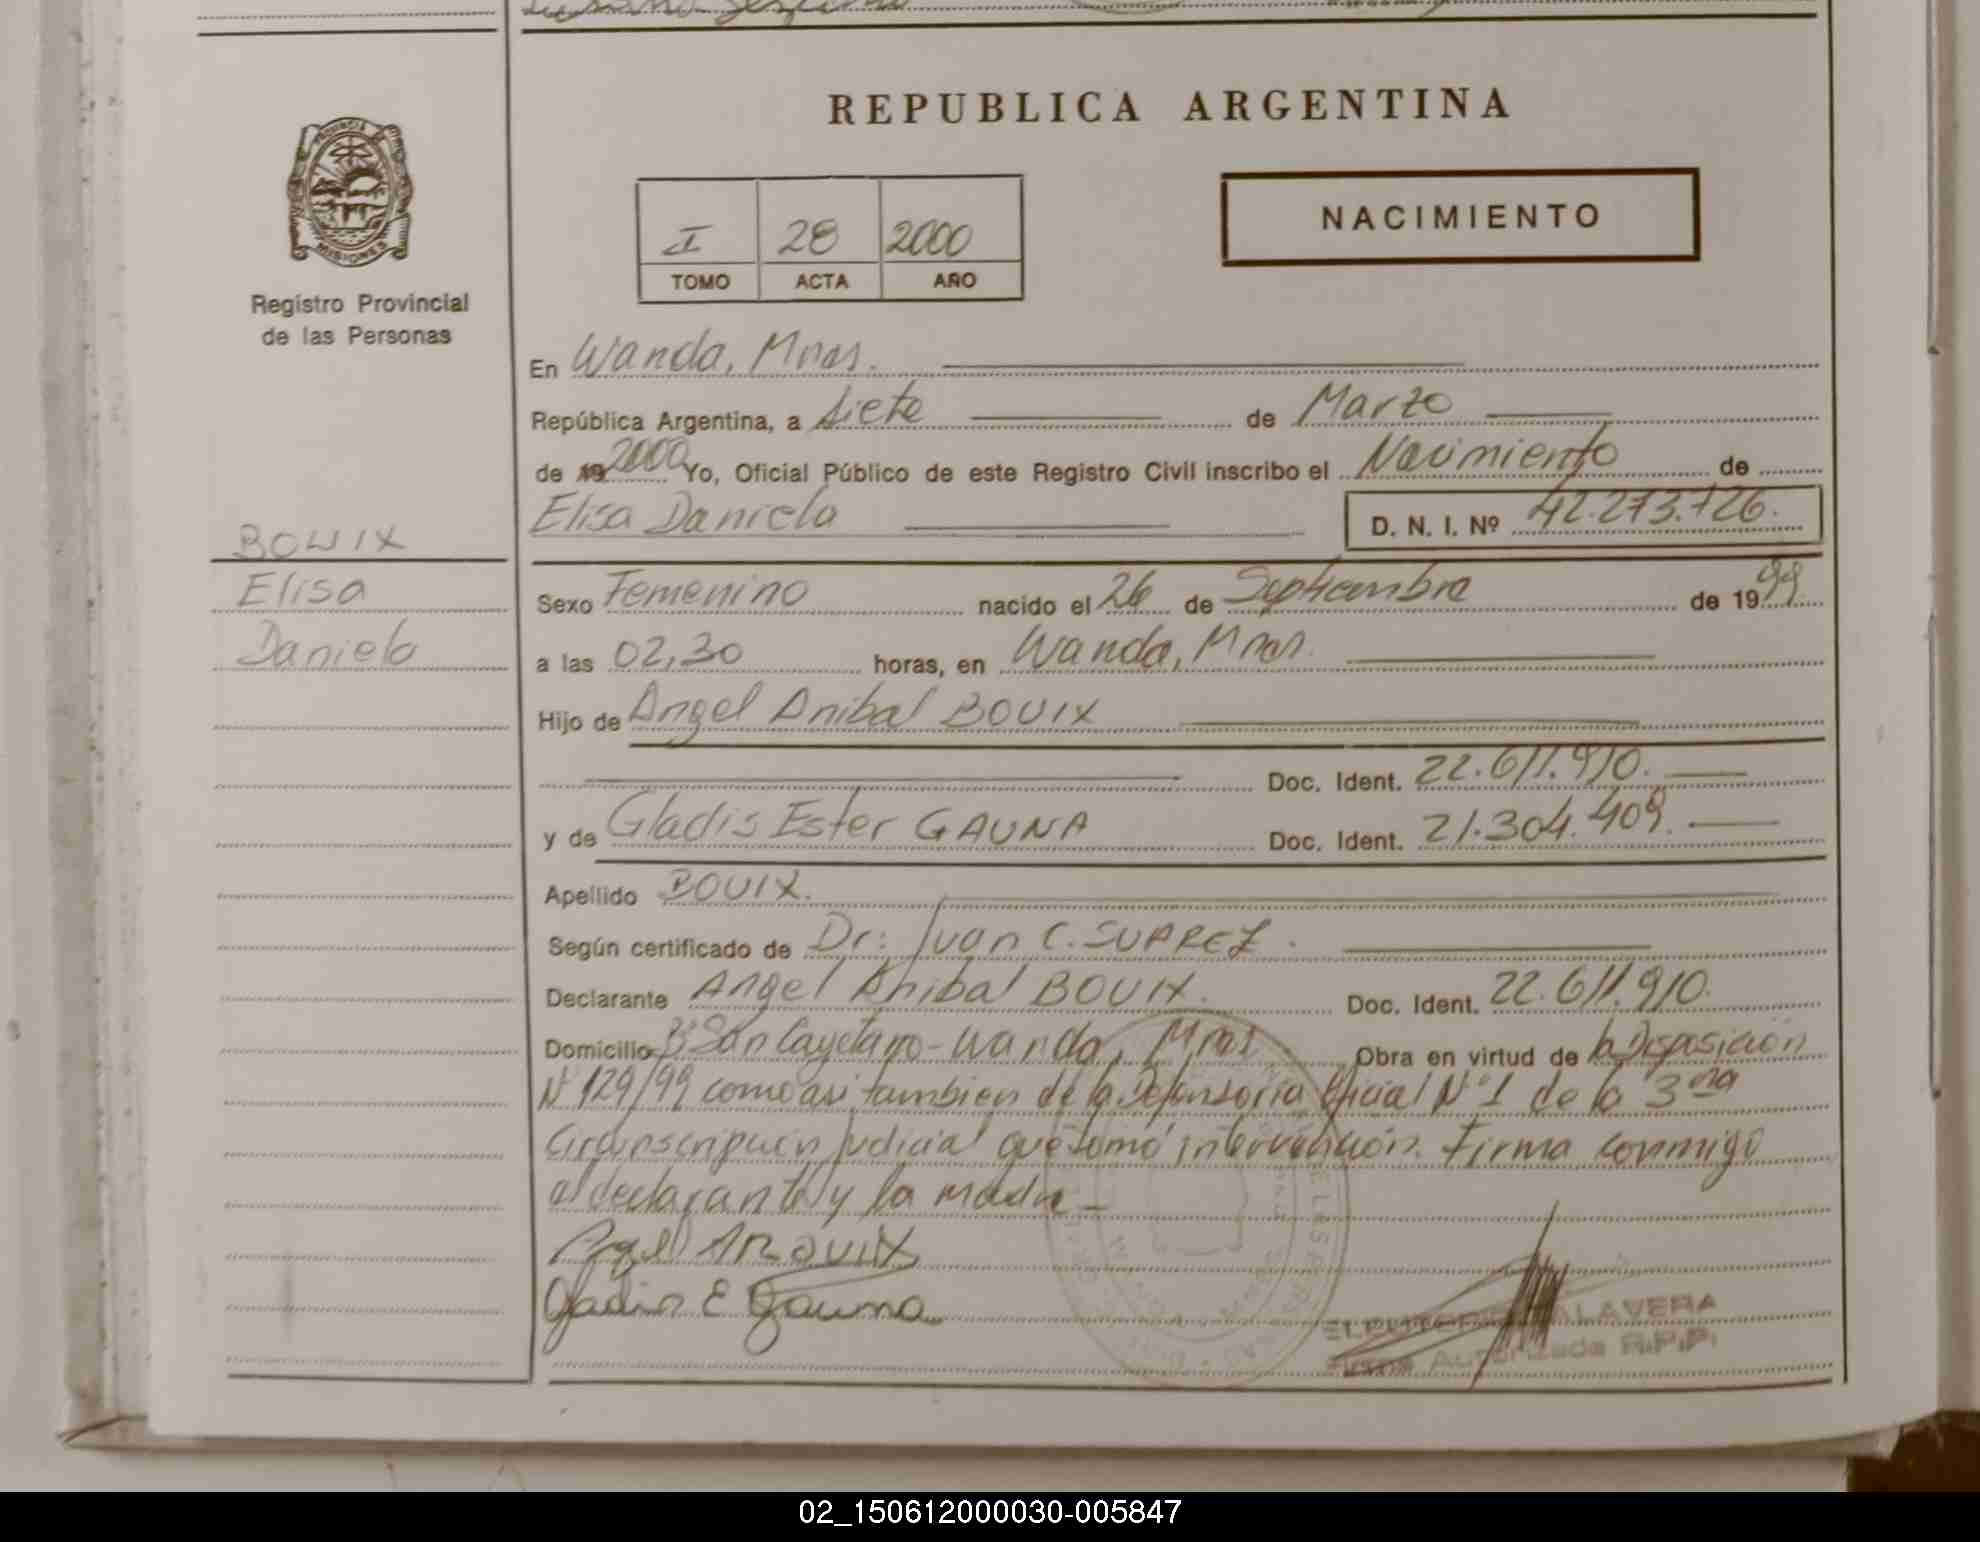 REPUBLICA ARGENTINA
PROVINCIA DE
MISIONES
Registro Provincial
de las Personas
I 28 2000
TOMO ACTA AÑO
NACIMIENTO
En Wanda, Mnes.
República Argentina, a siete de Marzo
de 19 2000 Yo, Oficial Público de este Registro Civil inscribo el Nacimiento de
Elisa Daniela D. N. I. Nº 42.273.726.
BOUIX
Elisa
Daniela
Sexo Femenino nacido el 26 de Septiembre de 1999
a las 02,30 horas, en Wanda, Mnes.
Hijo de Angel Anibal BOUIX
Doc. Ident. 22.611.910.
y de Gladis Ester GAUNA Doc. Ident. 21.304.409.
Apellido BOUIX.
Según certificado de Dr: Juan C. SUAREZ.
Declarante Angel Anibal BOUIX. Doc. Ident. 22.611.910.
Domicilio Bº San Cayetano - Wanda, Mnes Obra en virtud de la Disposición
Nº 129/99 como asi tambien de la Defensoria Oficial Nº 1 de la 3ra
Circunscripción Judicial que tomó intervención. Firma conmigo
el declarante y la madre -
Angel A BOUIX
Gladis E Gauna
ELEUTERIO TALAVERA
Firma Autorizada R.P.P.
02_150612000030-005847